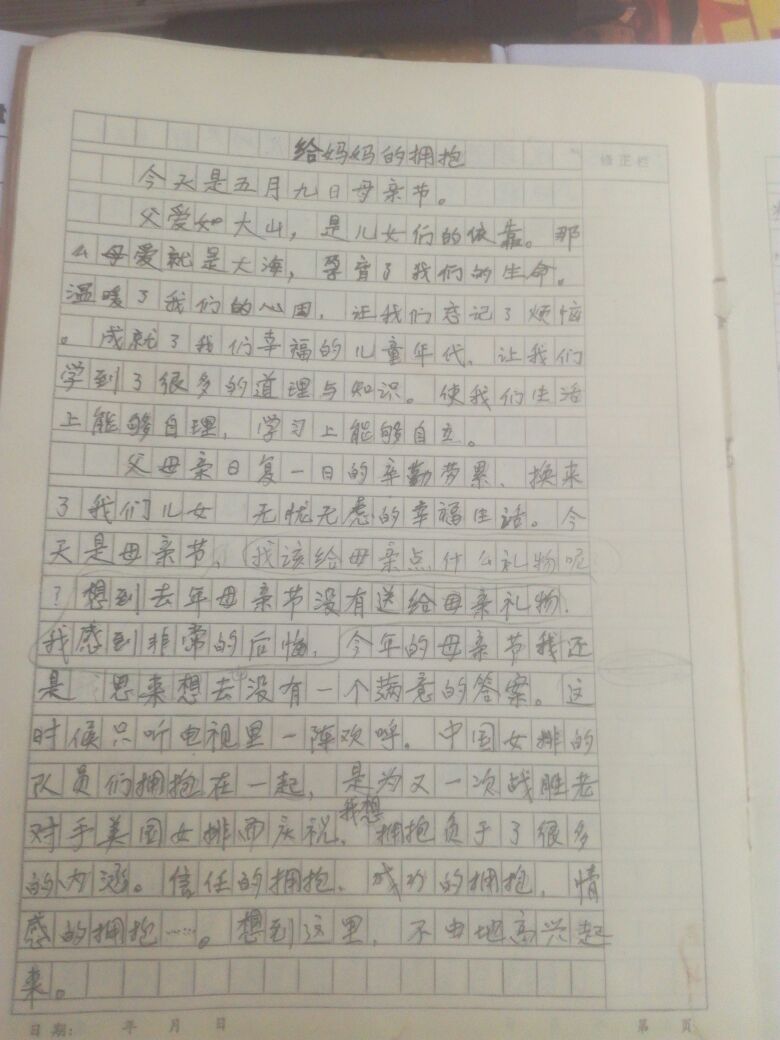 修正栏
给妈妈的拥抱
今天是五月九日母亲节。
父爱如大山，是儿女们的依靠。那
么母爱就是大海，孕育了我们的生命。
温暖了我们的心田，让我们忘记了烦恼
。成就了我们幸福的儿童年代、让我们
学到了很多的道理与知识。使我们生活
上能够自理，学习上能够自立。
父母亲日复一日的辛勤劳累、换来
了我们儿女 无忧无虑的幸福生活。今
天是母亲节，我该给母亲点什么礼物呢
？想到去年母亲节没有送给母亲礼物，
我感到非常的后悔，今年的母亲节我还
是 思来想去没有一个满意的答案。这
时候只听电视里一阵欢呼。中国女排的
队员们拥抱在一起，是为又一次战胜老
对手美国女排而庆祝，我想拥抱负于了很多
的内涵。信任的拥抱、成功的拥抱，情
感的拥抱……。想到这里，不由地高兴起
来。
日期： 年 月 日 第 页